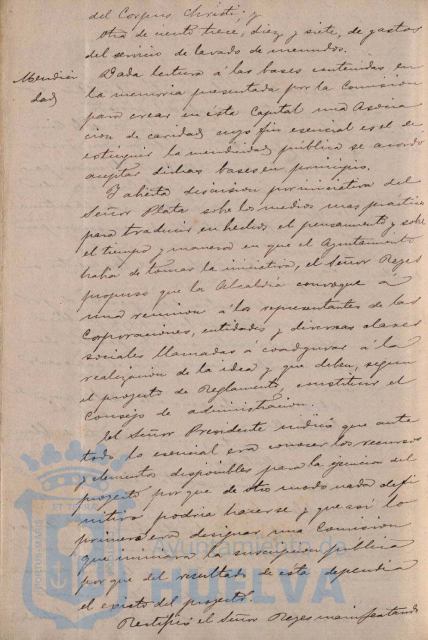 del Corpus Christi; y
Otra de ciento trece, diez y siete, de gastos
del servicio de lavado de menudos.
Mendici
dad
Dada lectura á las bases contenidas en
la memoria presentada por la Comision
para crear en ésta Capital una Asocia
cion de caridad cuyo fin esencial es el de
estinguir la mendicidad pública se acordó
aceptar dichas bases en principio.
Y abierta discusion por iniciativa del
Señor Plata sobe los medios mas practicos
para traducir en hechos el pensamiento y sobre
el tiempo y manera en que el Ayuntamiento
habia de tomar la iniciativa, el Señor Reyes
propuso que la Alcaldia convoque á
una reunion á los representantes de las
Corporaciones, entidades y diversas clases
sociales llamadas á coadyuvar á la
realizacion de la idea y que deben, segun
el proyecto de Reglamento, constituir el
Consejo de administracion.
El Señor Presidente indicó que ante
todo lo esencial era conocer los recursos
y elementos disponibles para la ejecucion del
proyecto porque de otro modo nada defi
nitivo podria hacerse y que asi lo
primero era designar una Comision
que iniciara la suscripcion pública
porque del resultado de esta dependia
el exito del proyecto.
Rectificó el Señor Reyes manifestando
ET TERRÆ
Ayuntamiento de
HUELVA